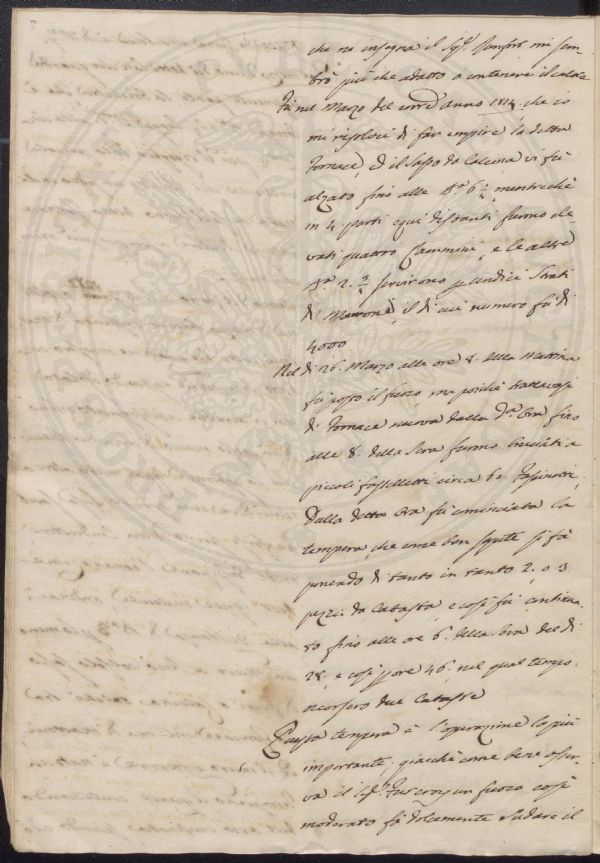 che ne insegna il Sig.r Rumfort mi sem
brò più che adatto a contenere il calore
Fù nel Marzo del corr.e anno 1814 che io
mi risolvei di far empire la detta
Fornace, ed il Sasso da Calcina vi fù
alzato fino alle B.a 6 1/2 mentrechè
in 4 parti equidistanti furono ele
vati quattro Cammini, e le altre
B.a 2. 3/4 servirono p undici Strati
di Mattoni, il di cui numero fù di
4000
Nel dì 26. Marzo alle ore 8. della Mattina
fù posto il fuoco ma poichè trattavasi
di Fornace nuova dalla d.a Ora fino
alle 8. della Sera furono bruciati a
piccoli fastelletti circa 60. Fascinotti.
Dalla detta Ora fù cominciata la
tempera, che come ben sapete si fà
ponendo di tanto in tanto 2. o 3
pezzi da Catasta, e così fù continua
to fino alle ore 6. della Sera del dì
28. e così p ore 46. nel qual tempo
occorsero due Cataste
Questa tempera è l'operazione la più
importante, giacchè come bene osser
va il Sig.r Fourcroy un fuoco così
moderato fà dolcemente Sudare il